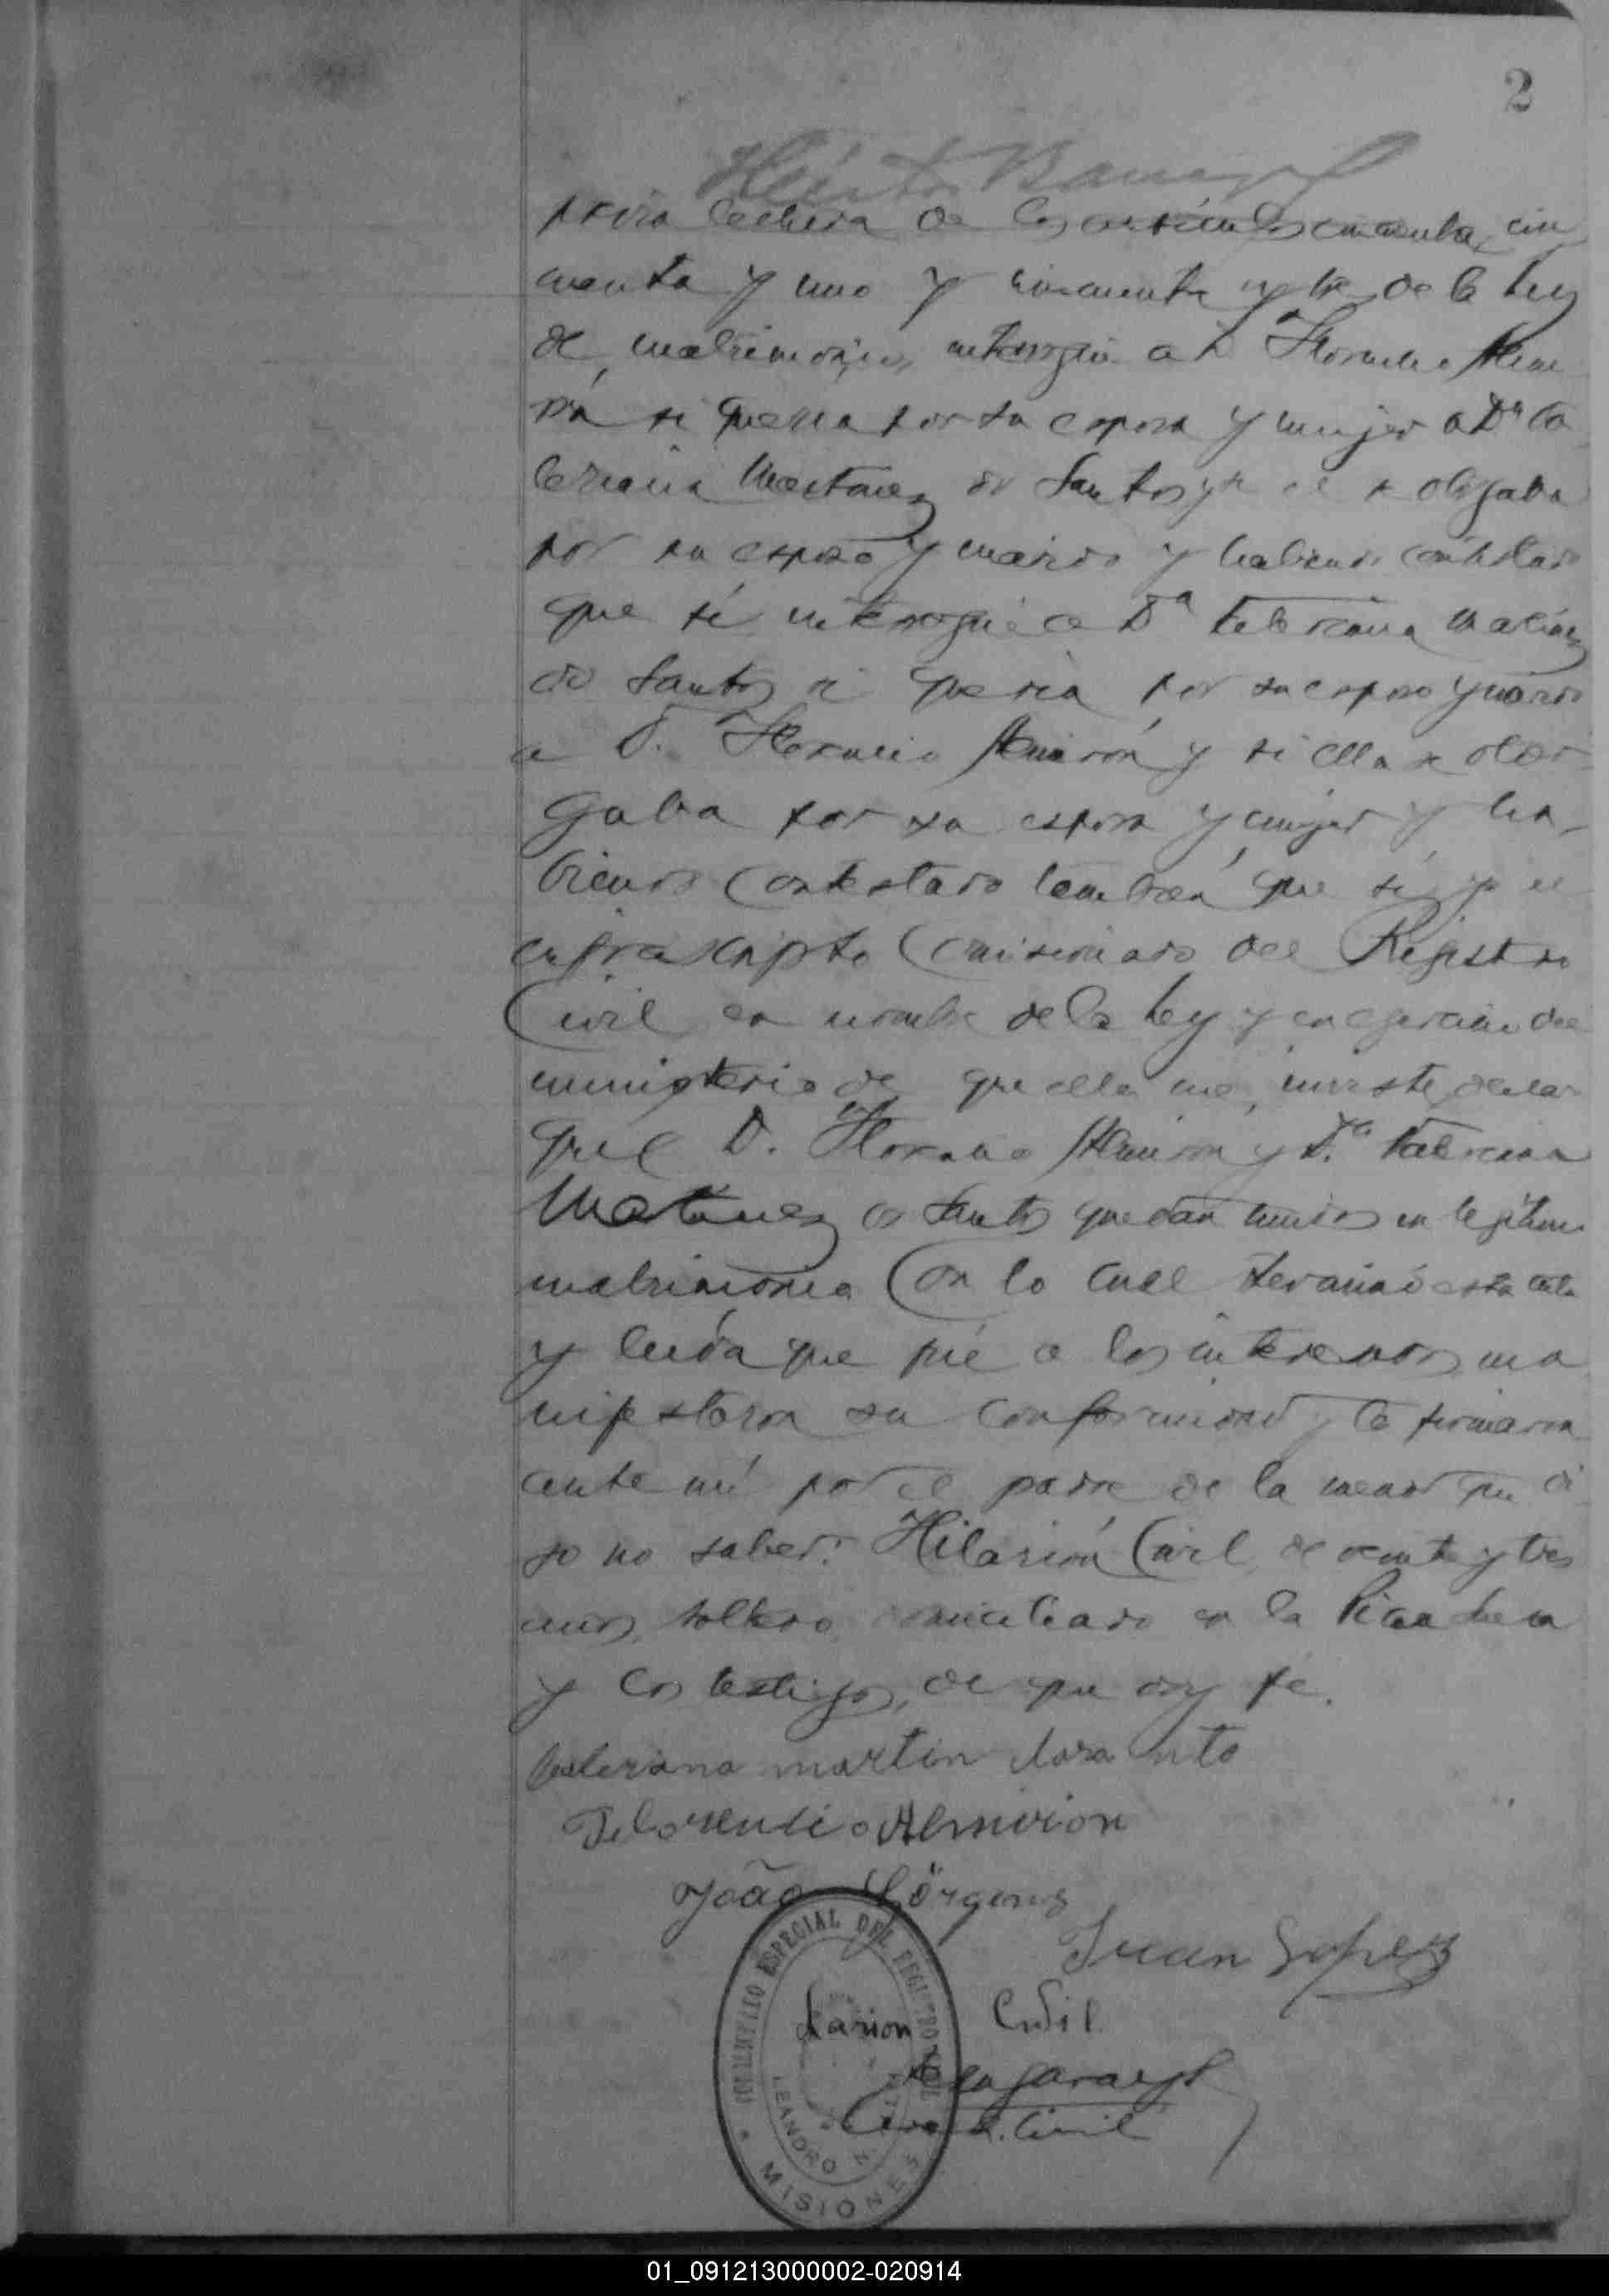 2
previa lectura de los artículos cincuenta, cin
cuenta y uno y cincuenta y tres de la Ley
de matrimonio, interrogué a D. Florencio Almi
rón si queria por su esposa y mujer a Dª Va
leriana Martínez do Santos y si se otorgaba
por su esposo y marido y habiendo contestado
que sí interrogué a Dª Valeriana Martínez
do Santos si queria por su esposo y marido
a D. Florencio Almirón y si ella se otor
gaba por su esposa y mujer y ha
biendo contestado también que sí, yo el
infrascripto Comisionado del Registro
Civil en nombre de la Ley y en ejercicio del
ministerio de que ella me inviste, declaro
que D. Florencio Almirón y Dª Valeriana
Martínez do Santos quedan unidos en legítimo
matrimonio Con lo cual terminó esta acta
y leída que fué a los interesados, ma
nifestaron su conformidad y la firmaron
ante mí por el padre de la menor que di
jo no saber: Hilarión Civil, de veinte y tres
años, soltero, domiciliado en la Picada
y los testigos, de que doy fé.
Valeriana martin
Felorensio Almirion
João Görgens
Juan Lopez
Larion Civil
R. Civil
ESPECIAL DEL REGISTRO CIVIL
LEANDRO N.
MISIONES
01_091213000002-020914